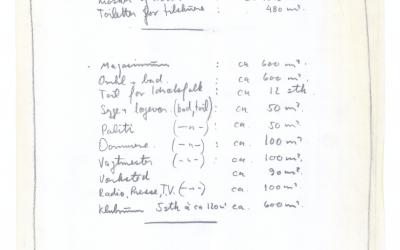 Toiletter for tilskuere : 480 m².
Magasinrum : ca 600 m².
Omkl + bad. : ca 600 m².
Toil for Idrætsfolk : ca 12 stk.
Syge + lægever. (bad, toil) : ca. 50 m².
Politi (-"-) : ca. 50 m².
Dommere. (-"-) : ca. 100 m².
Vagtmester (-"-) : ca. 100 m².
Værksted ca. 90 m².
Radio, Presse, T.V. (-"-) ca. 100 m².
Klubrum 5 stk à ca 120 m² ca. 600 m².